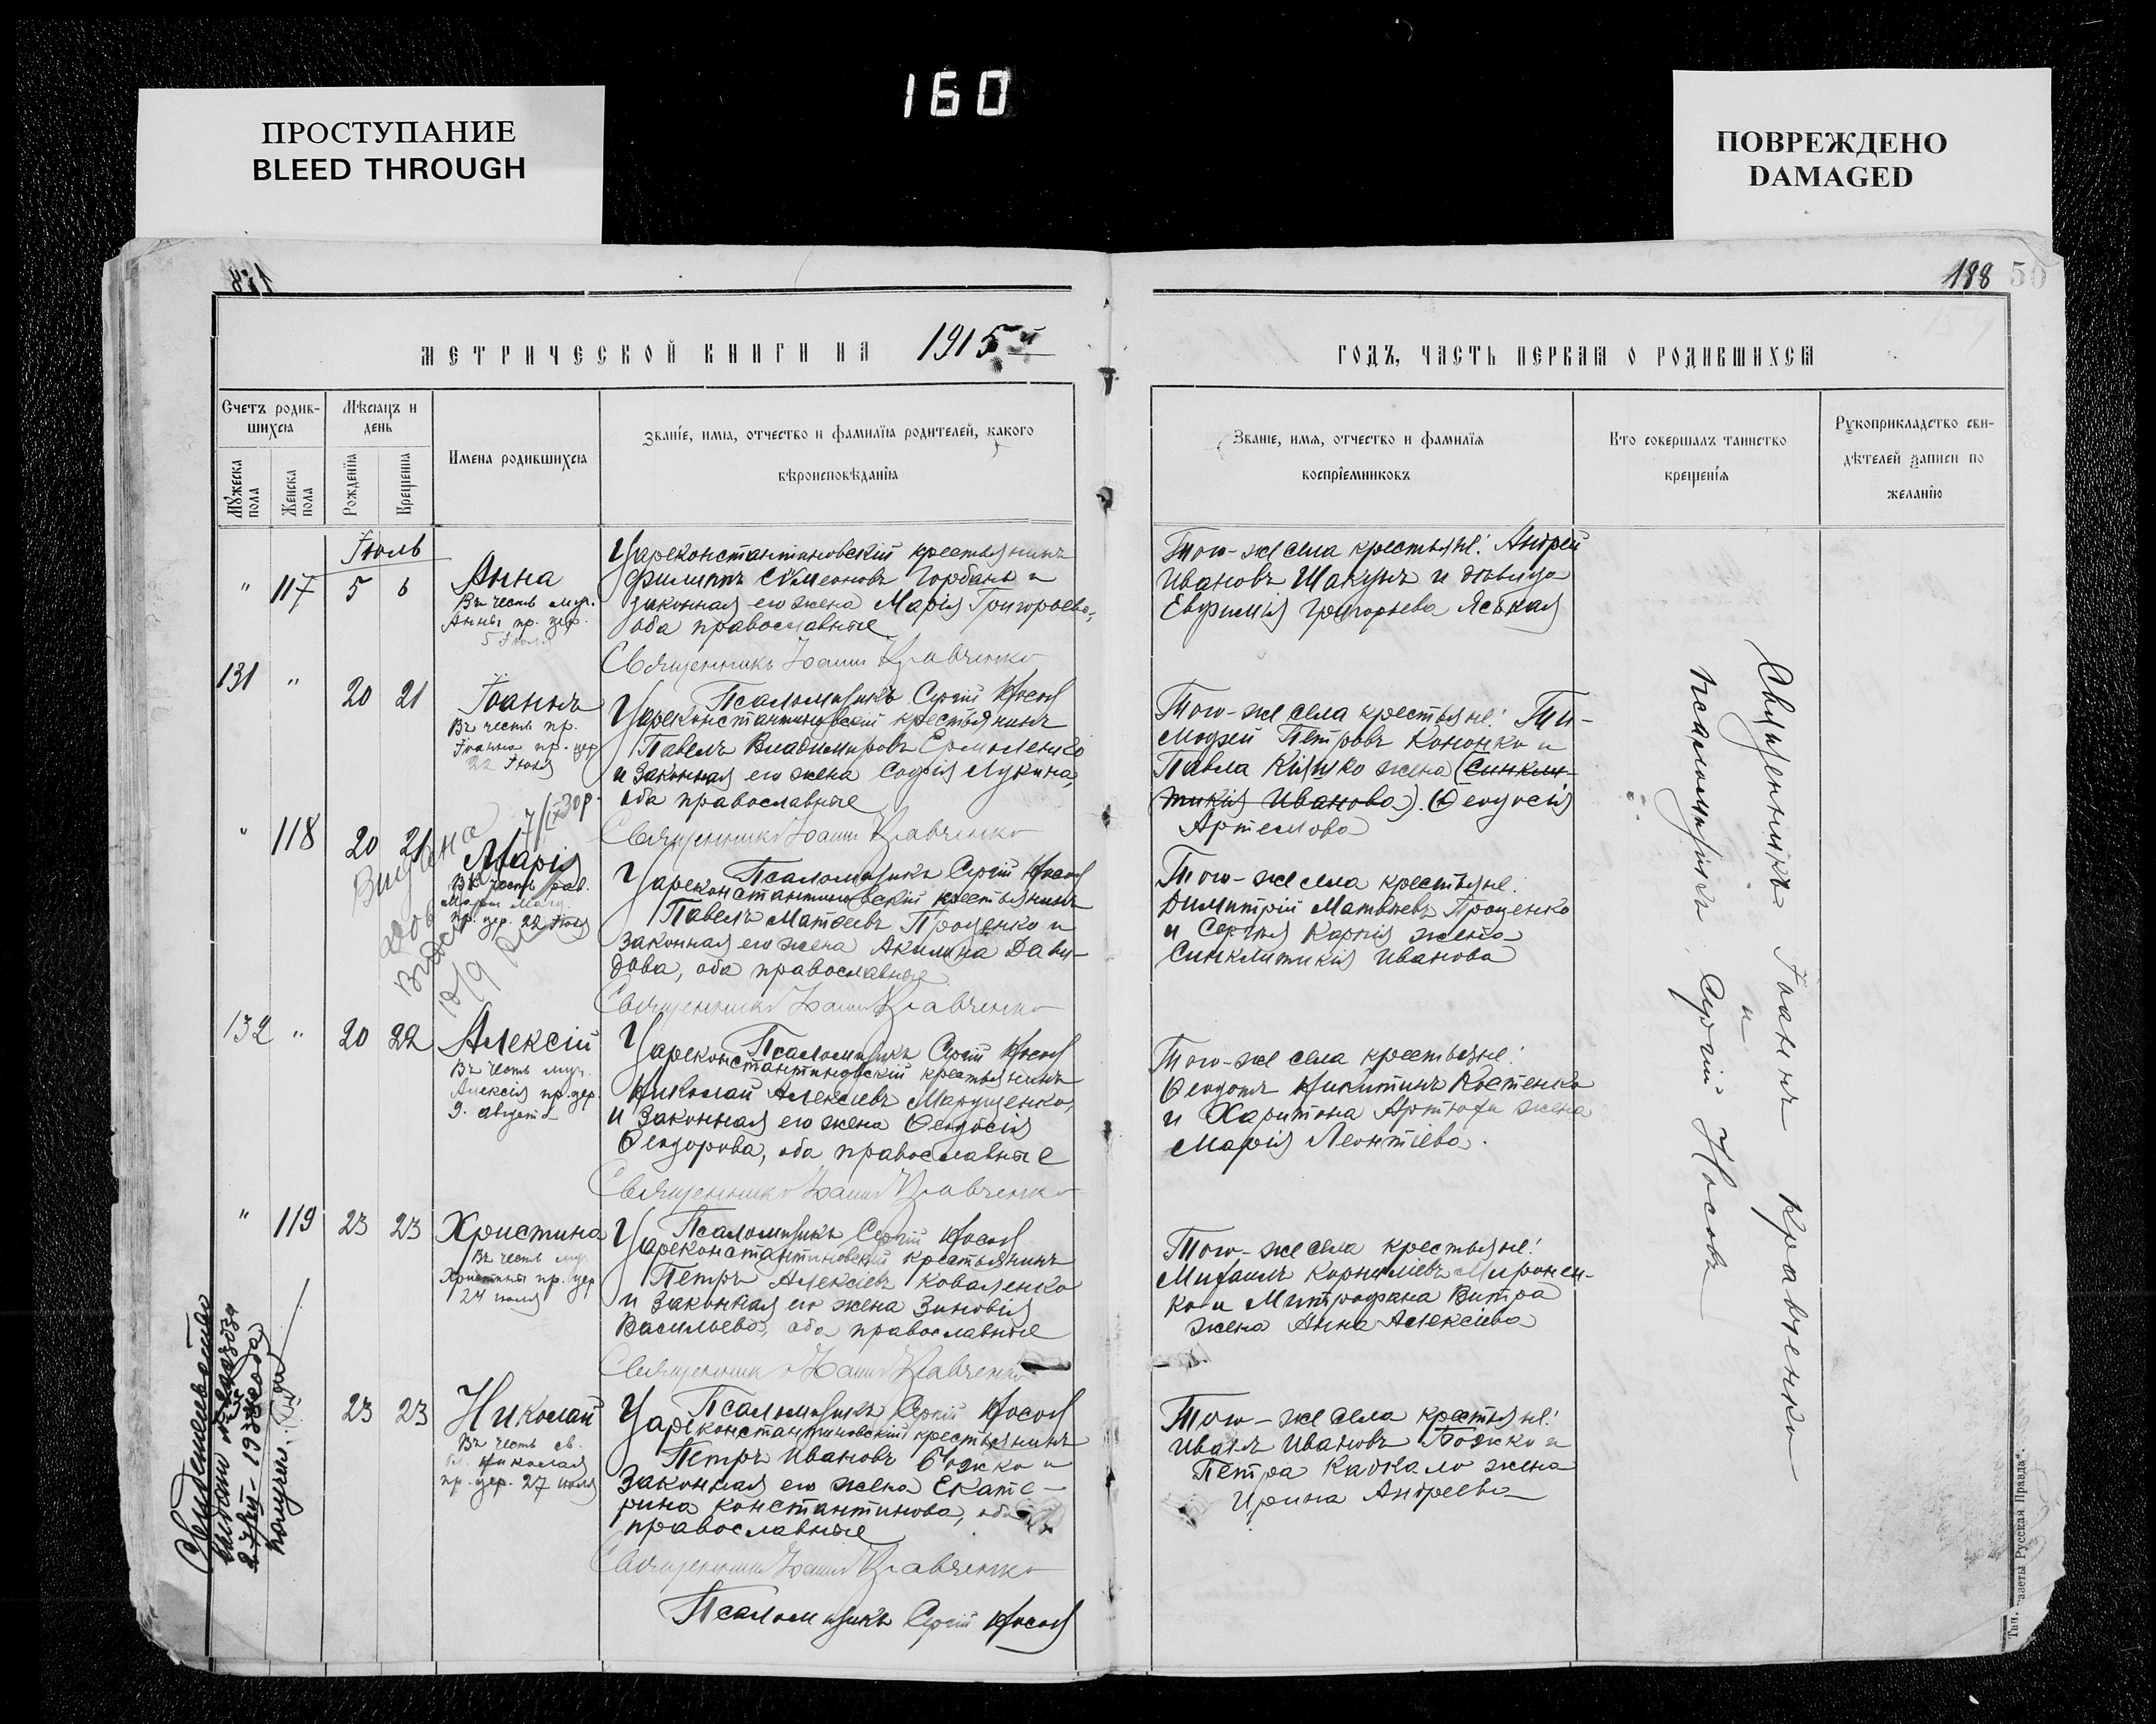 160
ПРОСТУПАНИЕ
BLEED THROUGH
ПОВРЕЖДЕНО
DAMAGED
188 50
МЕТРИЧЕСКОЙ КНИГИ НА 1915й
ГОДЪ, ЧАСТЬ ПЕРВАЯ О РОДИВШИХСЯ
Счетъ родив-
шихся
Мѣсяцъ и
день
Мужеска
пола
Женска
пола
Рожденія
Крещенія
Имена родившихся
Званіе, имя, отчество и фамилія родителей, какого
вѣроисповѣданія
Званіе, имя, отчество и фамилія
воспріемниковъ
Кто совершалъ таинство
крещенія
Рукоприкладство сви-
дѣтелей записи по
желанію
Іюль
" 117 5 6
Анна
Въ честь муч.
Анны пр. цер.
5 Іюля
Цареконстантиновскій крестьянинъ
Филиппъ Симеоновъ Горбань и
законная его жена Марія Григорьева,
оба православные
Священникъ Іоаннъ Кравченко
Псаломщикъ Сергій Носовъ
Того-же села крестьяне: Андрей
Ивановъ Шакунъ и дѣвица
Евфимія Григорьева Яськая
131 " 20 21
Іоаннъ
Въ честь пр.
Іоанна пр. цер
22 Іюля
Цареконстантиновскій крестьянинъ
Павелъ Владимировъ Ермоленко
и законная его жена Софія Лукина,
оба православные
Священникъ Іоаннъ Кравченко
Псаломщикъ Сергій Носовъ
Того-же села крестьяне: Ти-
мофей Петровъ Кононко и
Павла Кияшко жена (Синкли-
тикія Иванова). Ѳеодосія
Артемова
" 118 20 21
Марія
Въ честь рав.
Маріи Магд.
пр. цер. 22 Іюля
Цареконстантиновскій крестьянинъ
Павелъ Матѳеевъ Проценко и
законная его жена Акилина Дави-
дова, оба православные
Священникъ Іоаннъ Кравченко
Псаломщикъ Сергій Носовъ
Того-же села крестьяне:
Димитрій Матвѣевъ Проценко
и Сергія Карпія жена
Синклитикія Иванова
132 " 20 22
Алексій
Въ честь муч.
Алексія пр. цер
9. августа
Цареконстантиновскій крестьянинъ
Николай Алексіевъ Марущенко,
и законная его жена Ѳеодосія
Ѳеодорова, оба православные
Священникъ Іоаннъ Кравченко
Псаломщикъ Сергій Носовъ
Того-же села крестьяне:
Ѳеодотъ Никитинъ Костенко
и Харитона Артюхи жена
Марія Леонтіева.
" 119 23 23
Христина
Въ честь муч
Христины пр. цер
24 іюля
Цареконстантиновскій крестьянинъ
Петръ Алексіевъ Коваленко
и законная его жена Зиновія
Васильева, оба православные
Священникъ Іоаннъ Кравченко
Псаломщикъ Сергій Носовъ
Того-же села крестьяне:
Михаилъ Корниліевъ Миронен-
ко и Митрофана Витра
жена Анна Алексіева
23 23
Николай
Въ честь св.
Николая
пр. цер. 27 іюля
Цареконстантиновскій крестьянинъ
Петръ Ивановъ Божко и
законная его жена Екате-
рина Константинова, оба
православные
Священникъ Іоаннъ Кравченко
Псаломщикъ Сергій Носовъ
Того-же села крестьяне:
Иванъ Ивановъ Божко и
Петра Кабкало жена
Ирина Андреева
Священникъ Іоаннъ Кравченко
и
псаломщикъ Сергій Носовъ
Свидетельство
Тип. газеты „Русская Правда“.